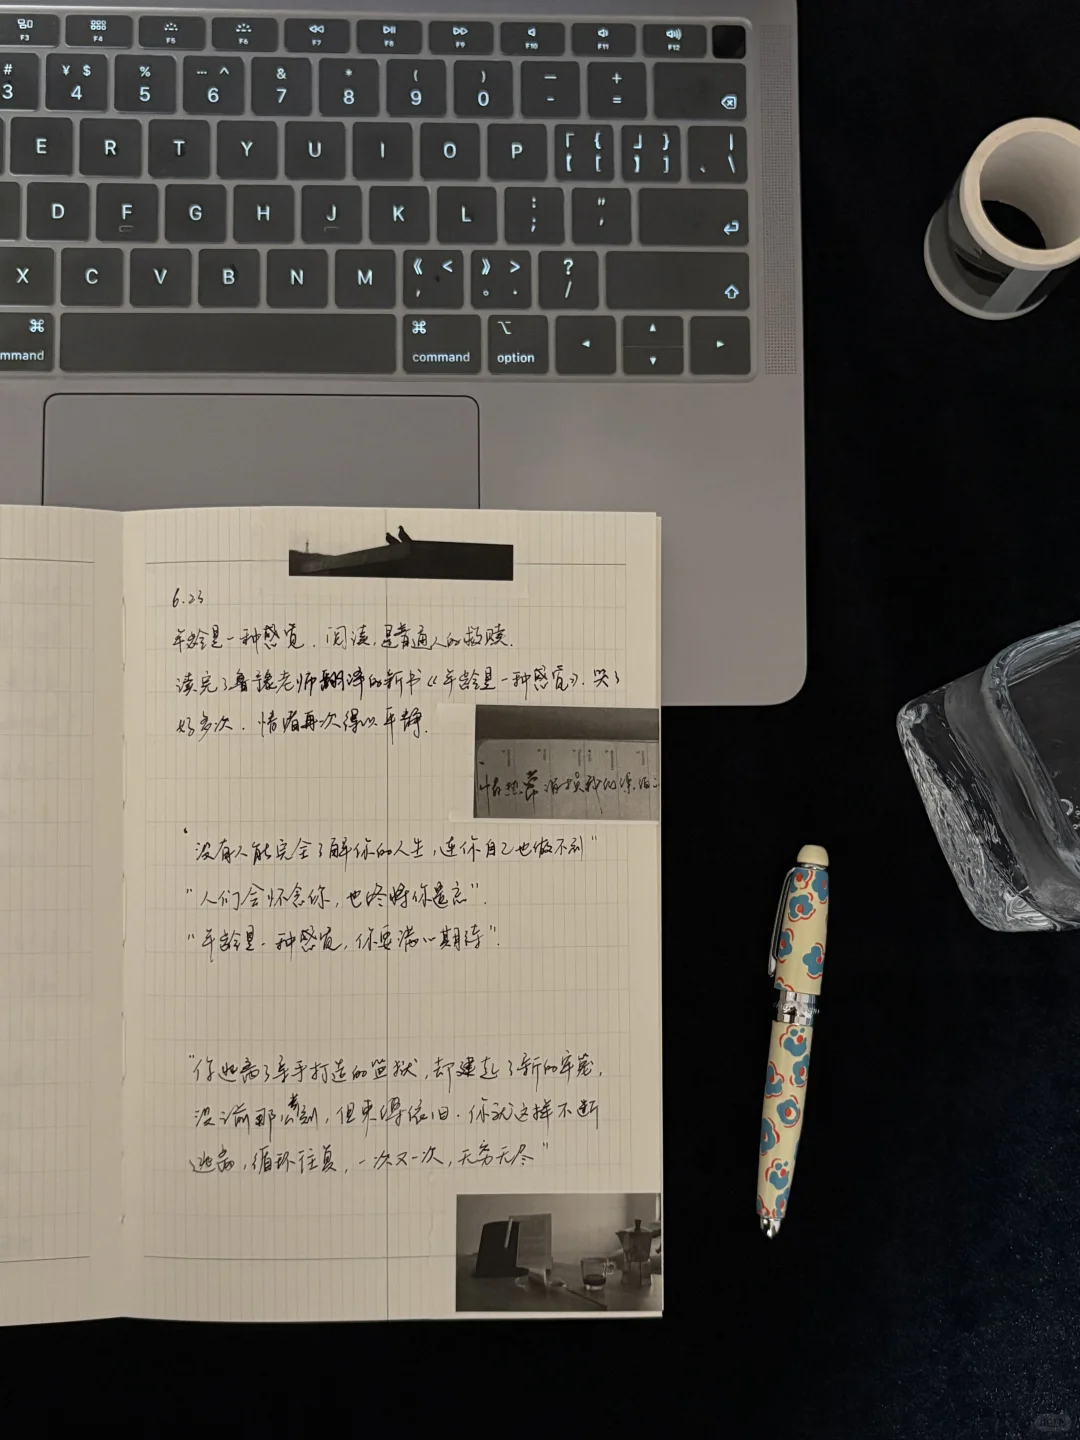 F3 F4 F5 F6 F7 F8 F9 F10 F11 F12
# 3 ¥ $ 4 % 5 … ^ 6 & 7 * 8 ( 9 ) 0 — - + =
E R T Y U I O P 「 { 【 [ 」 } 】 ] | 、 \
D F G H J K L : ; " '
X C V B N M 《 < , 》 > 。 . ? /
mmand command option
6.23
年龄是一种感觉．阅读，是普通人的救赎．
读完了鲁豫老师翻译的新书《年龄是一种感觉》．哭了
好多次．情绪再次得以平静．
"没有人能完全了解你的人生，连你自己也做不到"
"人们会怀念你，也终将你遗忘"．
"年龄是一种感觉，你要满心期待"．
"你逃离了亲手打造的监狱，却建起了新的牢笼，
没有那么 刻，但束缚依旧．你就这样不断
逃离，循环往复，一次又一次，无穷无尽"